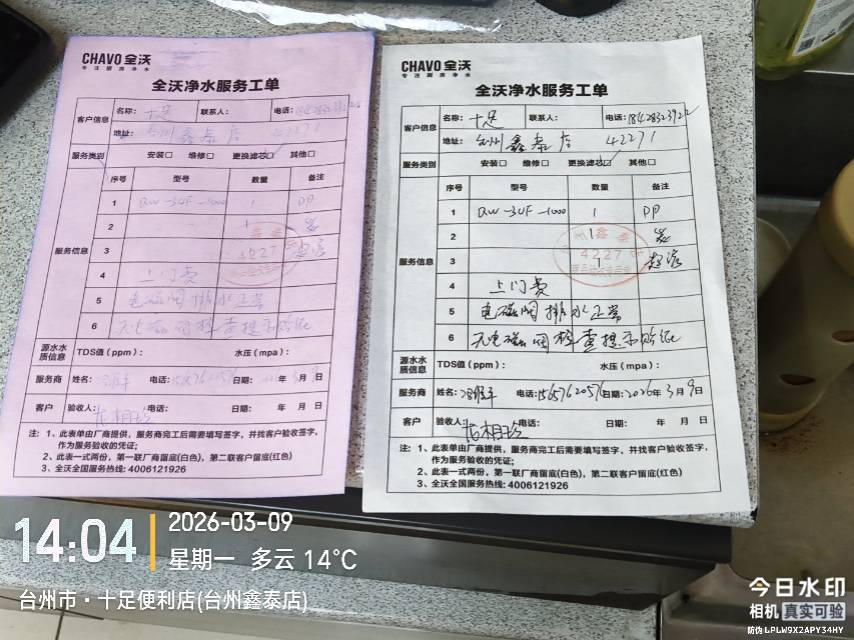 CHAVO全沃
专注厨房净水
全沃净水服务工单
客户信息
名称: 十足 联系人: 电话:
地址: 台州鑫泰店 42271
服务类别 安装□ 维修□ 更换滤芯□ 其他□
服务信息
序号 型号 数量 备注
1 RW-3UF-1000 1 PP
2 1 炭
3 超滤
4 上门费
5 电磁阀排水正常
6 无电磁阀检查提示贴纸
源水水质信息 TDS值(ppm): 水压(mpa):
服务商 姓名: 电话:15657620576 日期: 年 月 日
客户 验收人: 电话: 日期: 年 月 日
注: 1、此表单由厂商提供,服务商完工后需要填写签字,并找客户验收签字,
作为服务验收的凭证;
2、此表一式两份,第一联厂商留底(白色),第二联客户留底(红色)
3、全沃全国服务热线: 4006121926
CHAVO全沃
专注厨房净水
全沃净水服务工单
客户信息
名称: 十足 联系人: 电话:18428323922
地址: 台州鑫泰店 42271
服务类别 安装□ 维修□ 更换滤芯□ 其他□
服务信息
序号 型号 数量 备注
1 RW-3UF-1000 1 PP
2 1 炭
3 超滤
鑫泰
4227
4 上门费
5 电磁阀排水正常
6 无电磁阀检查提示贴纸
源水水质信息 TDS值(ppm): 水压(mpa):
服务商 姓名: 电话:15657620576 日期:2026年3月9日
客户 验收人: 电话: 日期: 年 月 日
注: 1、此表单由厂商提供,服务商完工后需要填写签字,并找客户验收签字,
作为服务验收的凭证;
2、此表一式两份,第一联厂商留底(白色),第二联客户留底(红色)
3、全沃全国服务热线: 4006121926
14:04
2026-03-09
星期一 多云 14°C
台州市·十足便利店(台州鑫泰店)
今日水印
相机 真实可验
防伪 LPLW9X2APY34HY